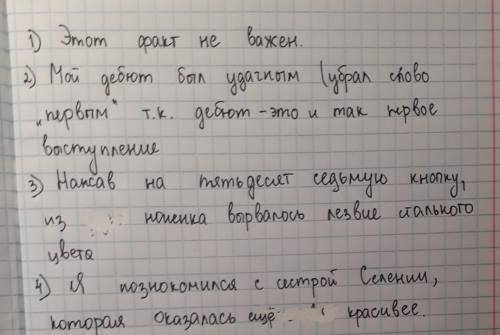 1) Этот факт не важен.
2) Мой дебют был удачным (убрал слово
„первым“ т.к. дебют - это и так первое
выступление
3) Нажав на пятьдесят седьмую кнопку,
из ноженка вырвалось лезвие стального
цвета
4) Я познокомился с сестрой Селении,
которая оказалась ещё красивее.